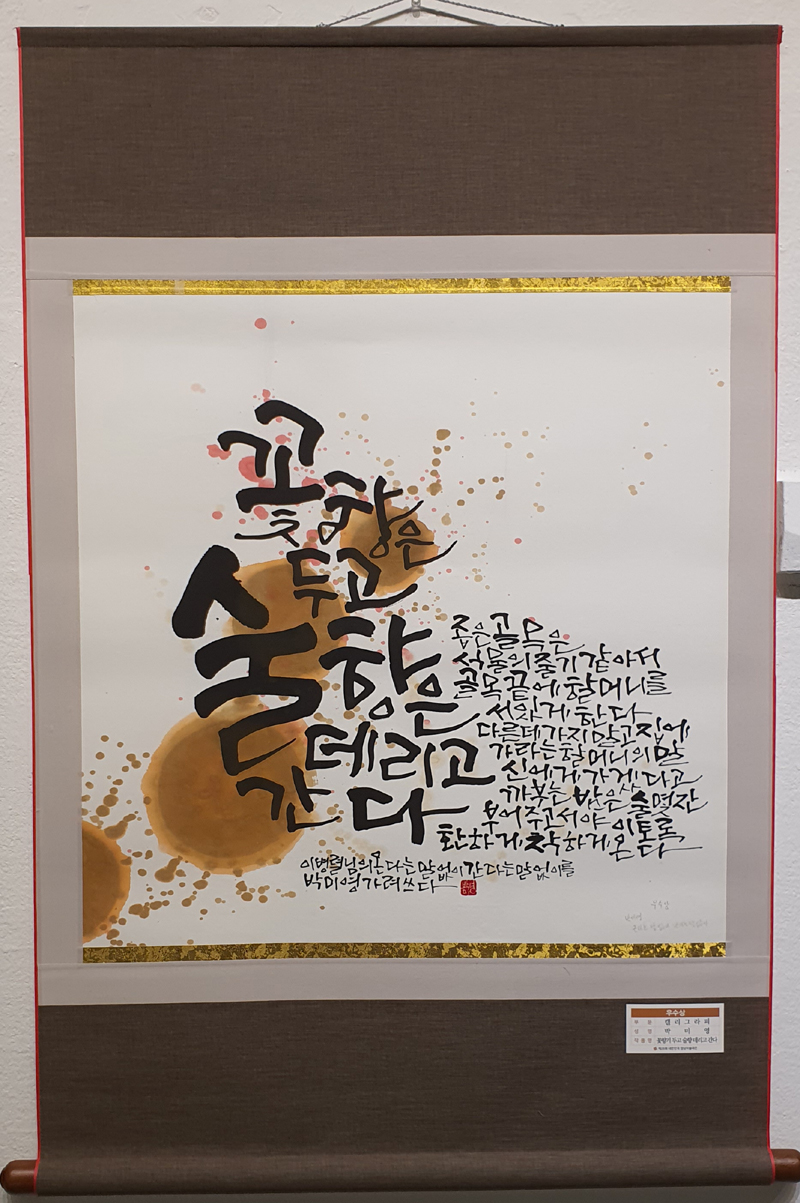 꽃향은
두고
술향은
데리고
간다
좋은 골목은
석물의 줄기 같아서
골목 끝에 할머니를
서있게 한다
다른데 가지 말고 집에
가라는 할머니의 말
신에게 가게 다고
까부는 받은 술 몇 잔
부어주고서야 이토록
환하게 착하게 온다
이병률님의 온다는 말 없이 간다는 말 없이를
박미영 가려쓰다
우수상
부 문 캘리그라피
성 명 박 미 영
작품명 꽃향기 두고 술향 데리고 간다